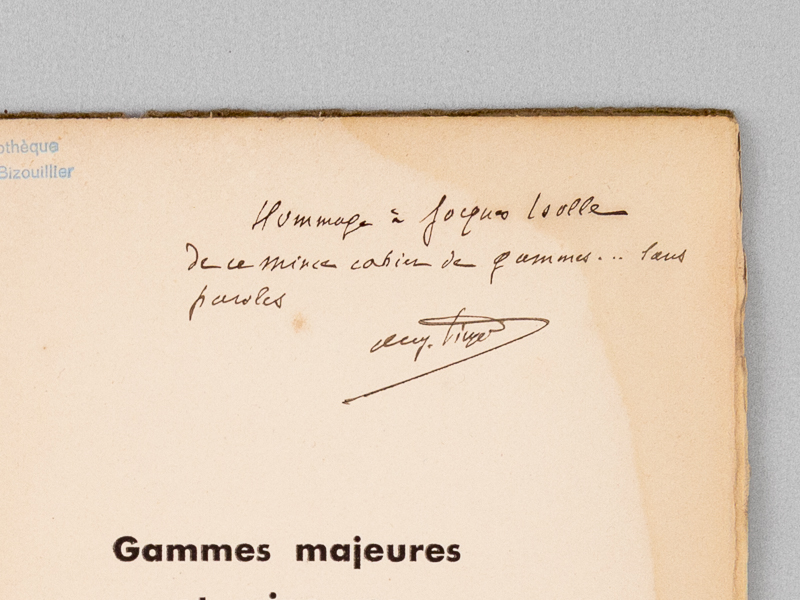 othèque
Bizouillier
Hommage à Jacques Isolle
de ce mince cahier de gammes... sans
paroles
Gammes majeures